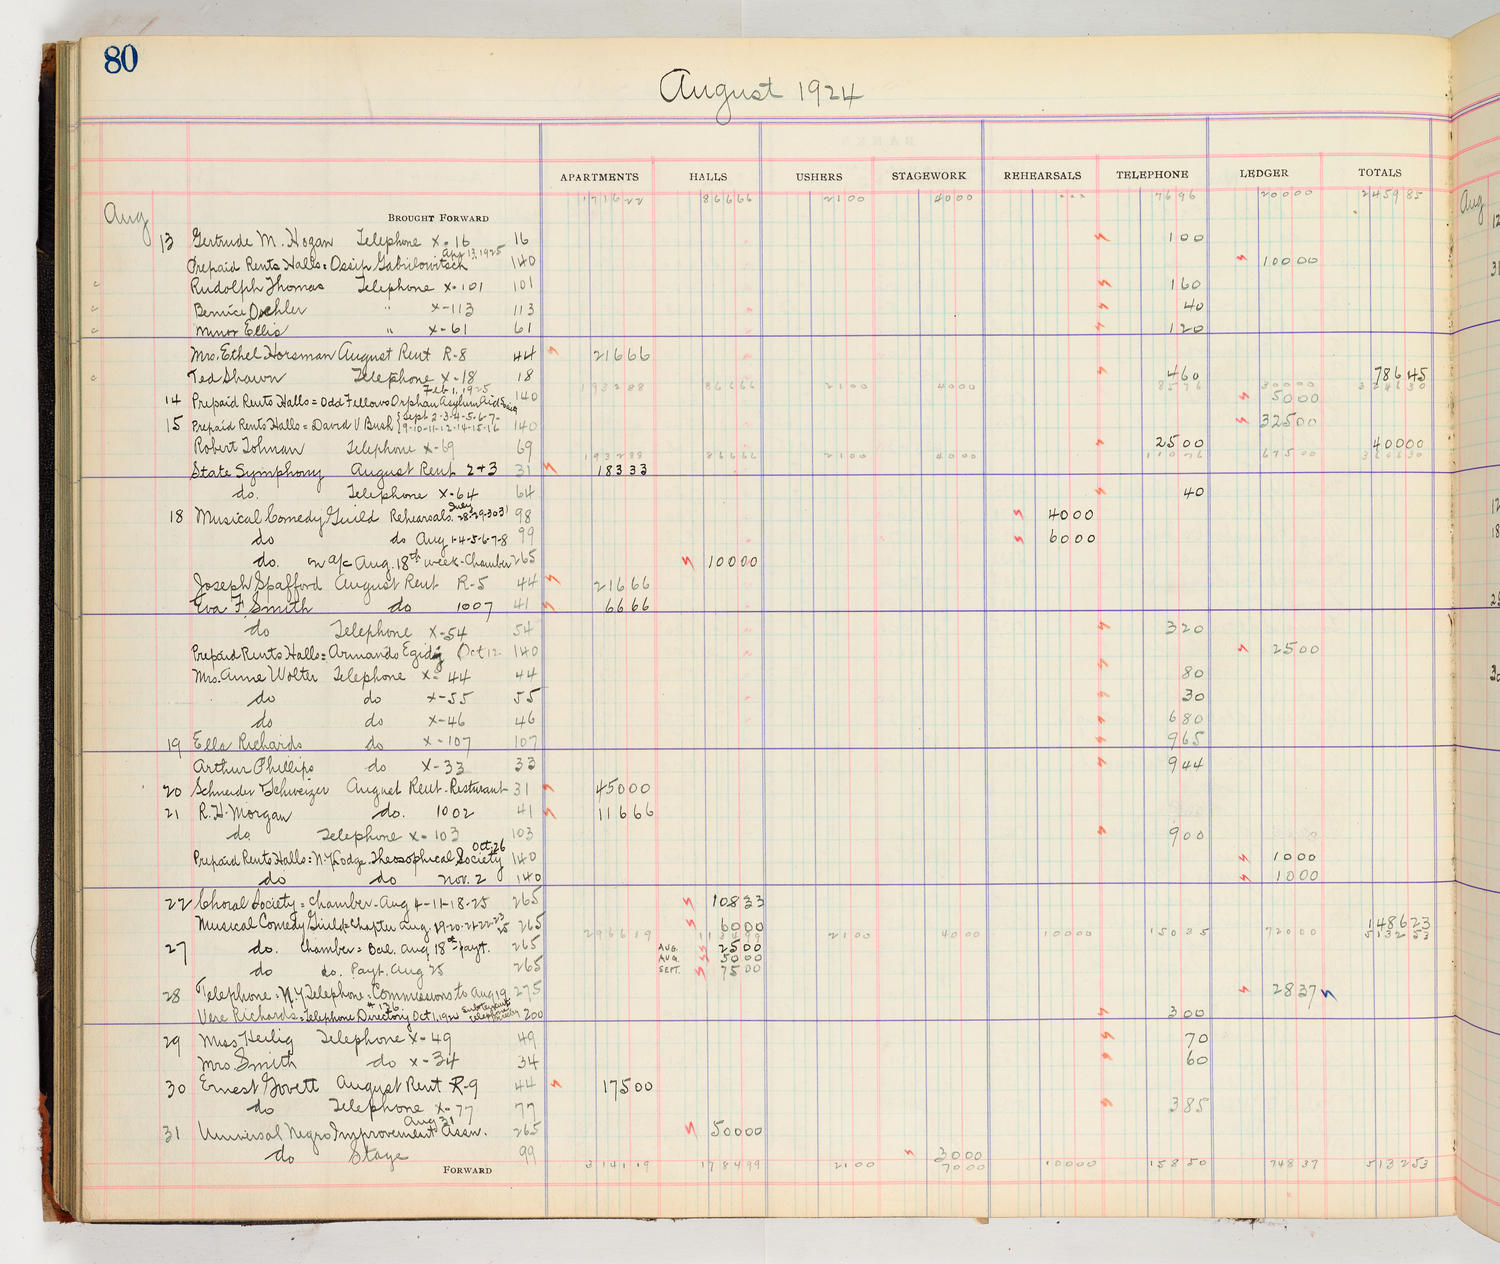 80
August 1924
APARTMENTS HALLS USHERS STAGEWORK REHEARSALS TELEPHONE LEDGER TOTALS
1716 22 866 66 21 00 40 00 76 96 200 00 2459 85
Aug BROUGHT FORWARD
13 Gertrude M. Hogan Telephone X-16 16 1 00
Apr 13, 1925
Prepaid Rents Halls = Ossip Gabrilowitsch 140 100 00
Rudolph Thomas Telephone X-101 101 1 60
Bernice Oechler " X-113 113 40
Minor Ellis " X-61 61 1 20
Mrs. Ethel Horsman August Rent R-8 44 216 66
Ted Shawn Telephone X-18 18 4 60 786 45
1932 88 866 66 21 00 40 00 85 76 300 00 3246 30
Feb 1, 1925
14 Prepaid Rents Halls = Odd Fellows Orphan Asylum Aid Society 140 50 00
15 Prepaid Rents Halls = David V Bush { Sept 2-3-4-5-6-7- 9-10-11-12-14-15-16 140 325 00
Robert Tohman Telephone X-69 69 25 00 400 00
1932 88 866 66 21 00 40 00 110 76 675 00 3646 30
State Symphony August Rent 2+3 31 183 33
do. Telephone X-64 64 40
18 Musical Comedy Guild Rehearsals July 28-29-30-31 98 40 00
do do Aug 1-4-5-6-7-8 99 60 00
do. on a/c Aug. 18th week-Chamber 265 100 00
Joseph Spafford August Rent R-5 44 216 66
Eva F. Smith do 1007 41 66 66
do Telephone X-54 54 3 20
Prepaid Rents Halls = Armando Egidij Oct 12 140 25 00
Mrs. Anne Wolter Telephone X-44 44 80
do do X-55 55 30
do do X-46 46 6 80
19 Ella Richards do X-107 107 9 65
Arthur Phillips do X-33 33 9 44
20 Schneider & Schweizer August Rent-Resturant 31 450 00
21 R.H. Morgan do. 1002 41 116 66
do. Telephone X-103 103 9 00
Oct. 26
Prepaid Rents Halls = N.Y. Lodge Theosophical Society 140 10 00
do do Nov. 2 140 10 00
22 Choral Society = Chamber-Aug 4-11-18-25 265 108 33
Musical Comedy Guild = Chapter Aug. 19-20-21-22-23 25 265 60 00 1486 23
2966 19 21 00 40 00 100 00 150 35 720 00 5132 53
27 do. Chamber = Bal. Aug 18th payt. 265 AUG. 25 00
AUG. 50 00
do do. Payt. Aug 25 265 SEPT. 75 00
28 Telephone = N.Y. Telephone = Commissions to Aug 19 275 28 37
Vere Richards = Telephone Directory Oct 1, 1924 200 3 00
29 Miss Heilig Telephone X-49 49 70
Mrs. Smith do X-34 34 60
30 Ernest Govett August Rent R-9 44 175 00
do Telephone X-77 77 3 85
Aug 31
31 Universal Negro Improvement Assn. 265 500 00
do Stage 99 30 00
FORWARD 3141 19 1784 99 21 00 70 00 100 00 158 50 748 37 5132 53